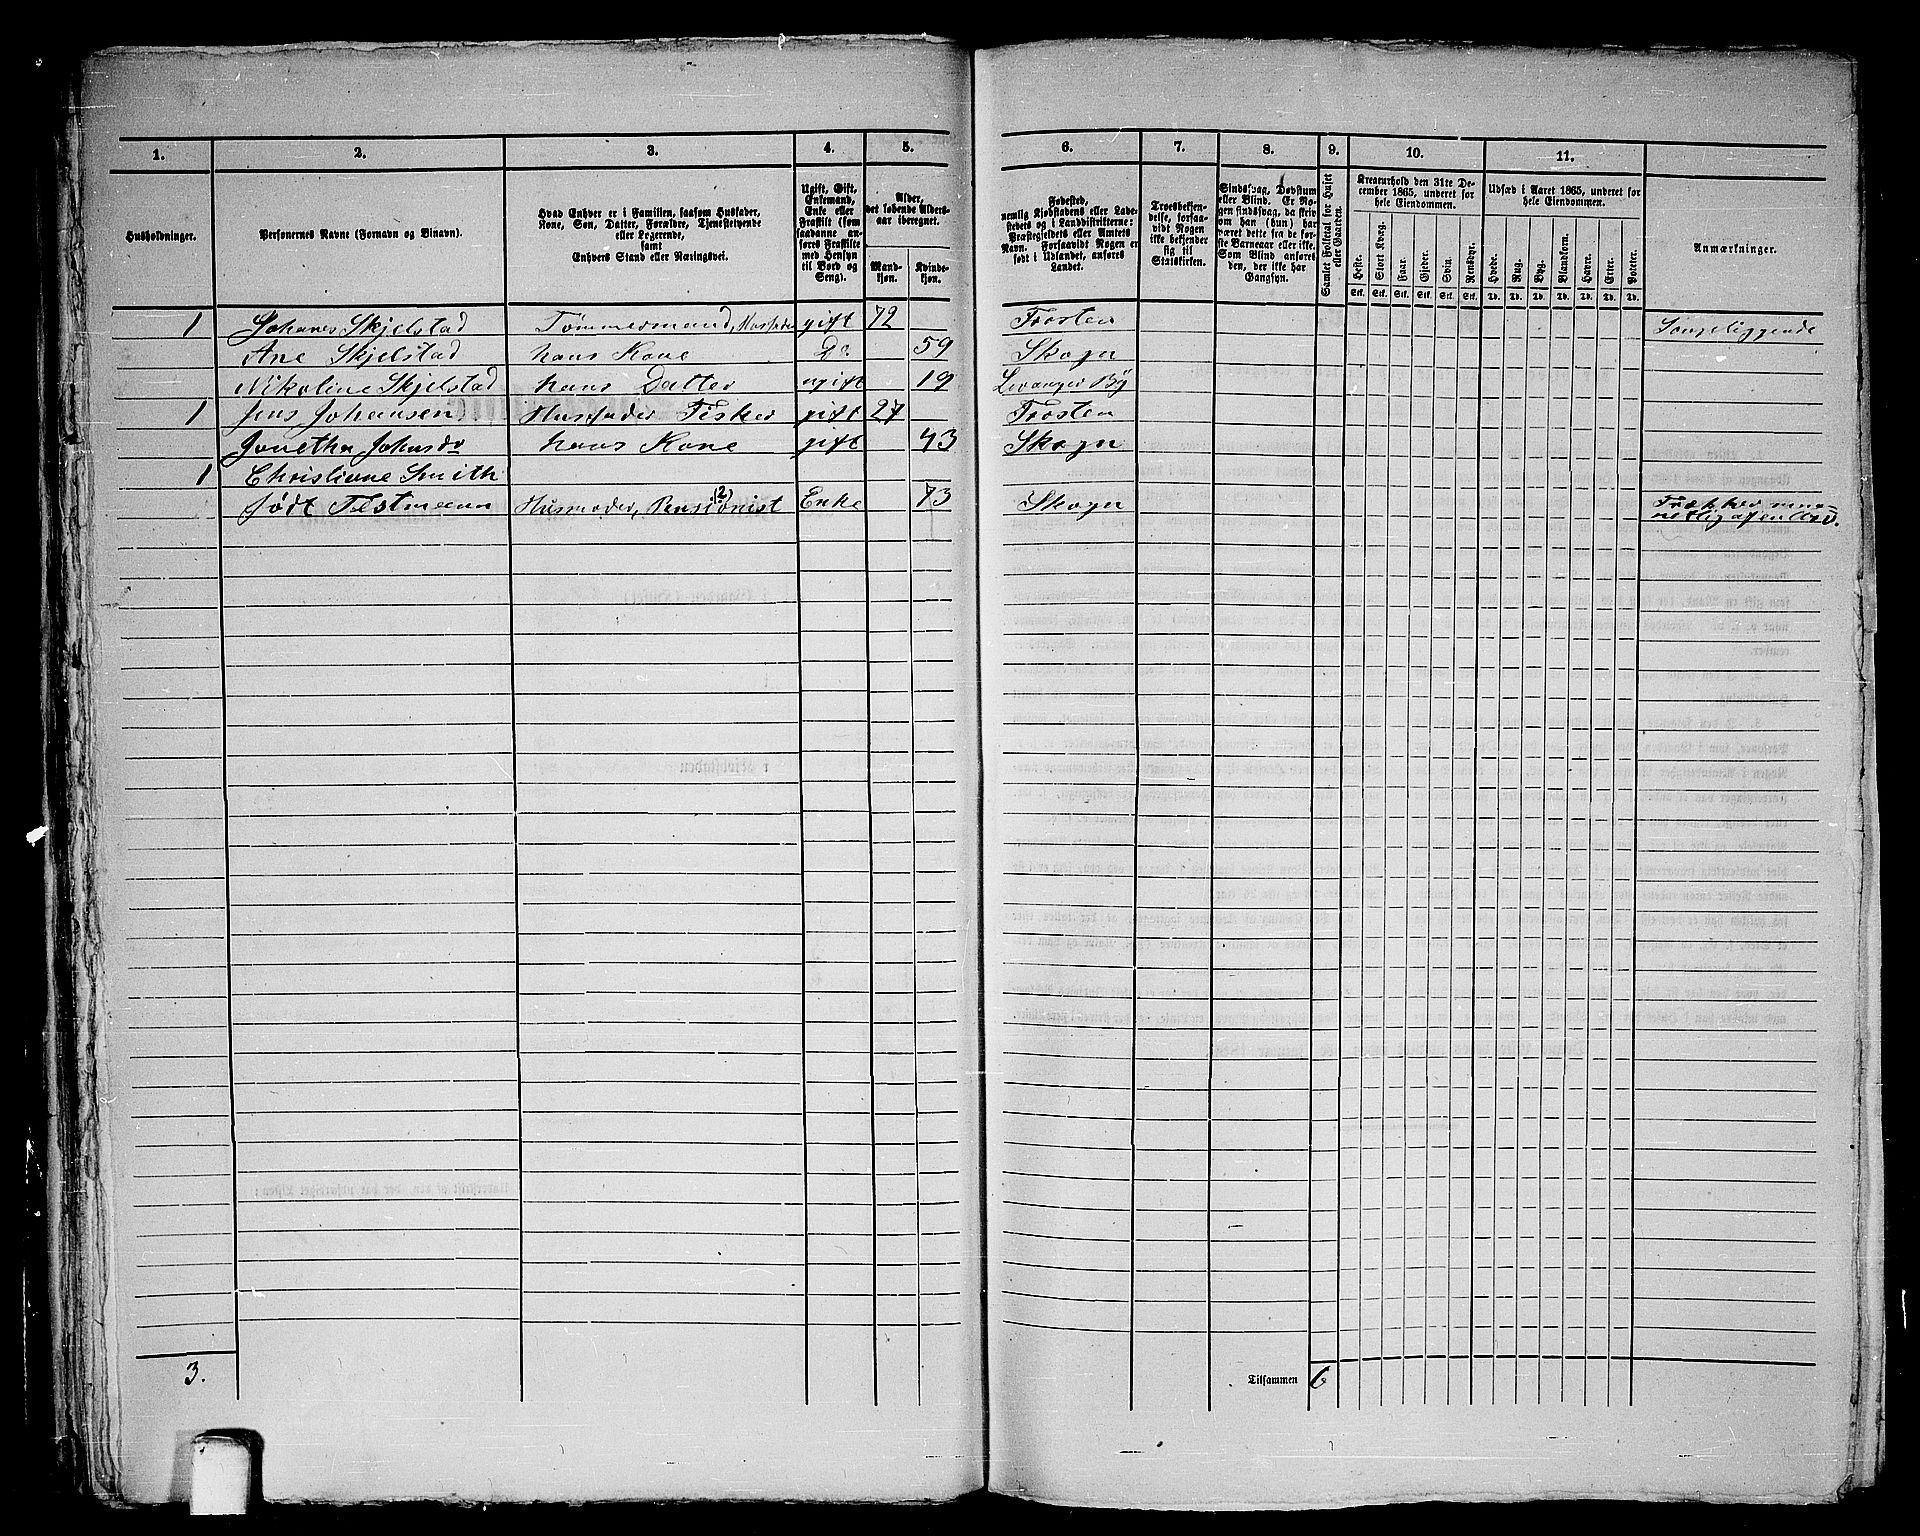 1. 2. 3. 4. 5. 6. 7. 8. 9. 10. 11.
Husholdninger.
Personernes Navne (Fornavn og Binavn).
Hvad Enhver er i Familien, saasom Husfader,
Kone, Søn, Datter, Forældre, Tjenestetyende
eller Logerende,
samt
Enhvers Stand eller Næringsvei.
Ugift, Gift,
Enkemand,
Enke eller
Fraskilt (som
saadanne an-
føres Fraskilte
med Hensyn
til Bord og
Seng).
Alder,
det løbende Alders-
aar iberegnet.
Mand-
kjøn.
Kvinde-
kjøn.
Fødested,
nemlig Kjøbstadens eller Lade-
stedets og i Landdistrikterne:
Præstegjeldets eller Amtets
Navn. Forsaavidt Nogen er
født i Udlandet, anføres
Landet.
Troesbekjen-
delse, forsaa-
vidt Nogen
ikke bekjender
sig til
Statskirken.
Sindssvag, Døvstum
eller Blind. Er No-
gen sindssvag, da skriv
om han (hun) har
været dette fra de før-
ste Barneaar eller ikke.
Som Blind anføres
den, der ikke har
Gangsyn.
Samlet Folketal for Huset
eller Gaarden.
Kreaturhold den 31te De-
cember 1865, underet for
hele Eiendommen.
Heste. Stort Kvæg. Faar. Gjeder. Svin. Rensdyr.
Stk. Stk. Stk. Stk. Stk. Stk.
Udsæd i Aaret 1865, underet for
hele Eiendommen.
Hvede. Rug. Byg. Blandkorn. Havre. Erter. Poteter.
Td. Td. Td. Td. Td. Td. Td.
Anmærkninger.
1 Johanes Skjelstad Tømmermand, Husfader gift 72 Frosten Sengeliggende
Ane Skjelstad hans Kone Do. 59 Skogn
Nikoline Skjelstad hans Datter ugift 19 Levanger By
1 Jens Johansen Husfader Fisker gift 27 Frosten
Jonetha Johnsdr hans Kone gift 43 Skogn
1 Christiane Smith
født Festmann Husmoder, Pensionist (2) Enke 73 Skogn
3.
Tilsammen 6